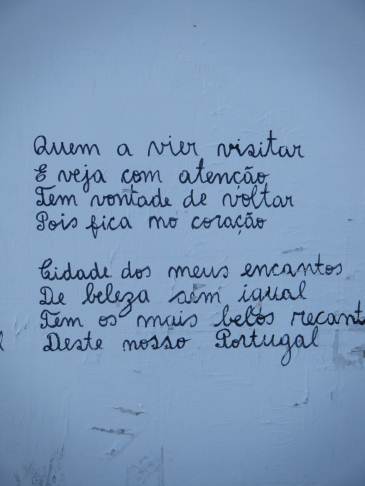 Quem a vier visitar
E veja com atenção
Tem vontade de voltar
Pois fica no coração
Cidade dos meus encantos
De beleza sem igual
Tem os mais belos recant
Deste nosso Portugal